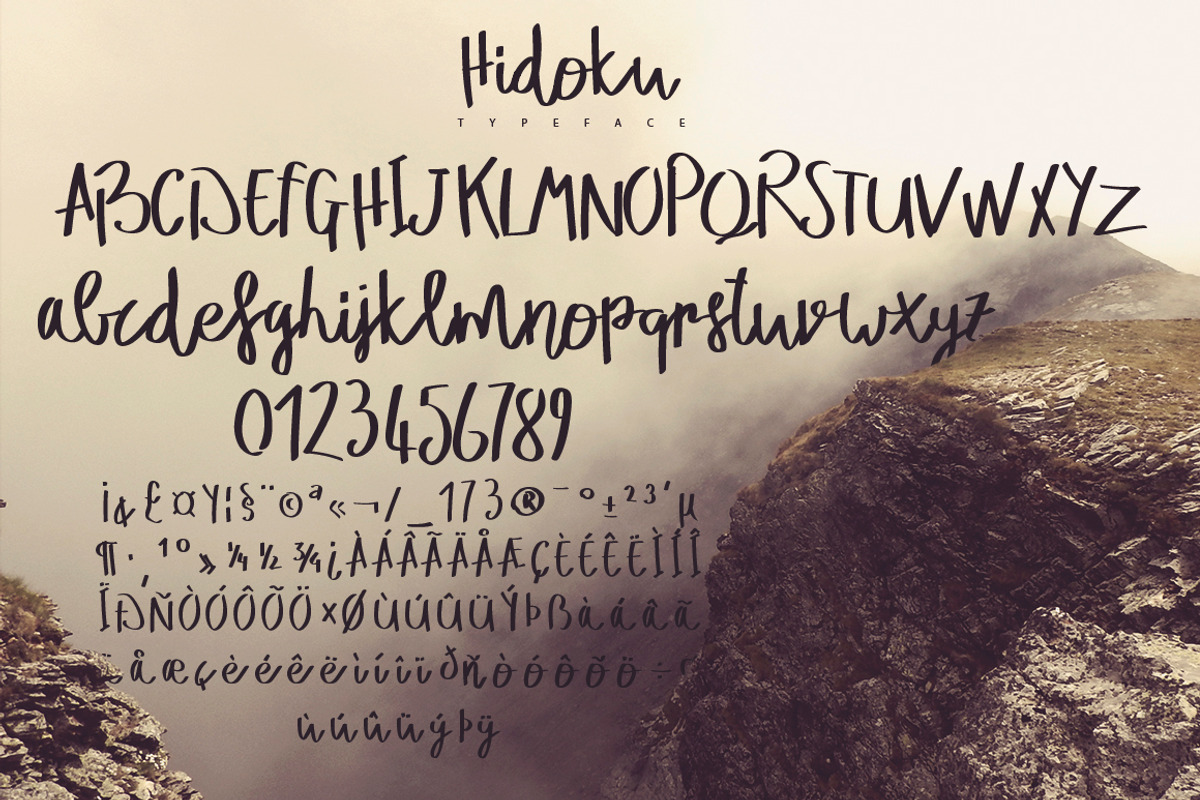 Hidoku
TYPEFACE
ABCDEfGHIJKLMNOPQRSTUVWXYZ
abcdefghijklmnopqrstuvwxyz
0123456789
¡¢£¤Y¦§¨©ª«¬/_173®¯°±²³´µ
¶·¸¹º»¼½¾¿ÀÁÂÃÄÅÆÇÈÉÊËÌÍÎ
ÏÐÑÒÓÔÕÖ×ØÙÚÛÜÝÞßàáâã
äåæçèéêëìíîïðñòóôõö÷
ùúûüýþÿ